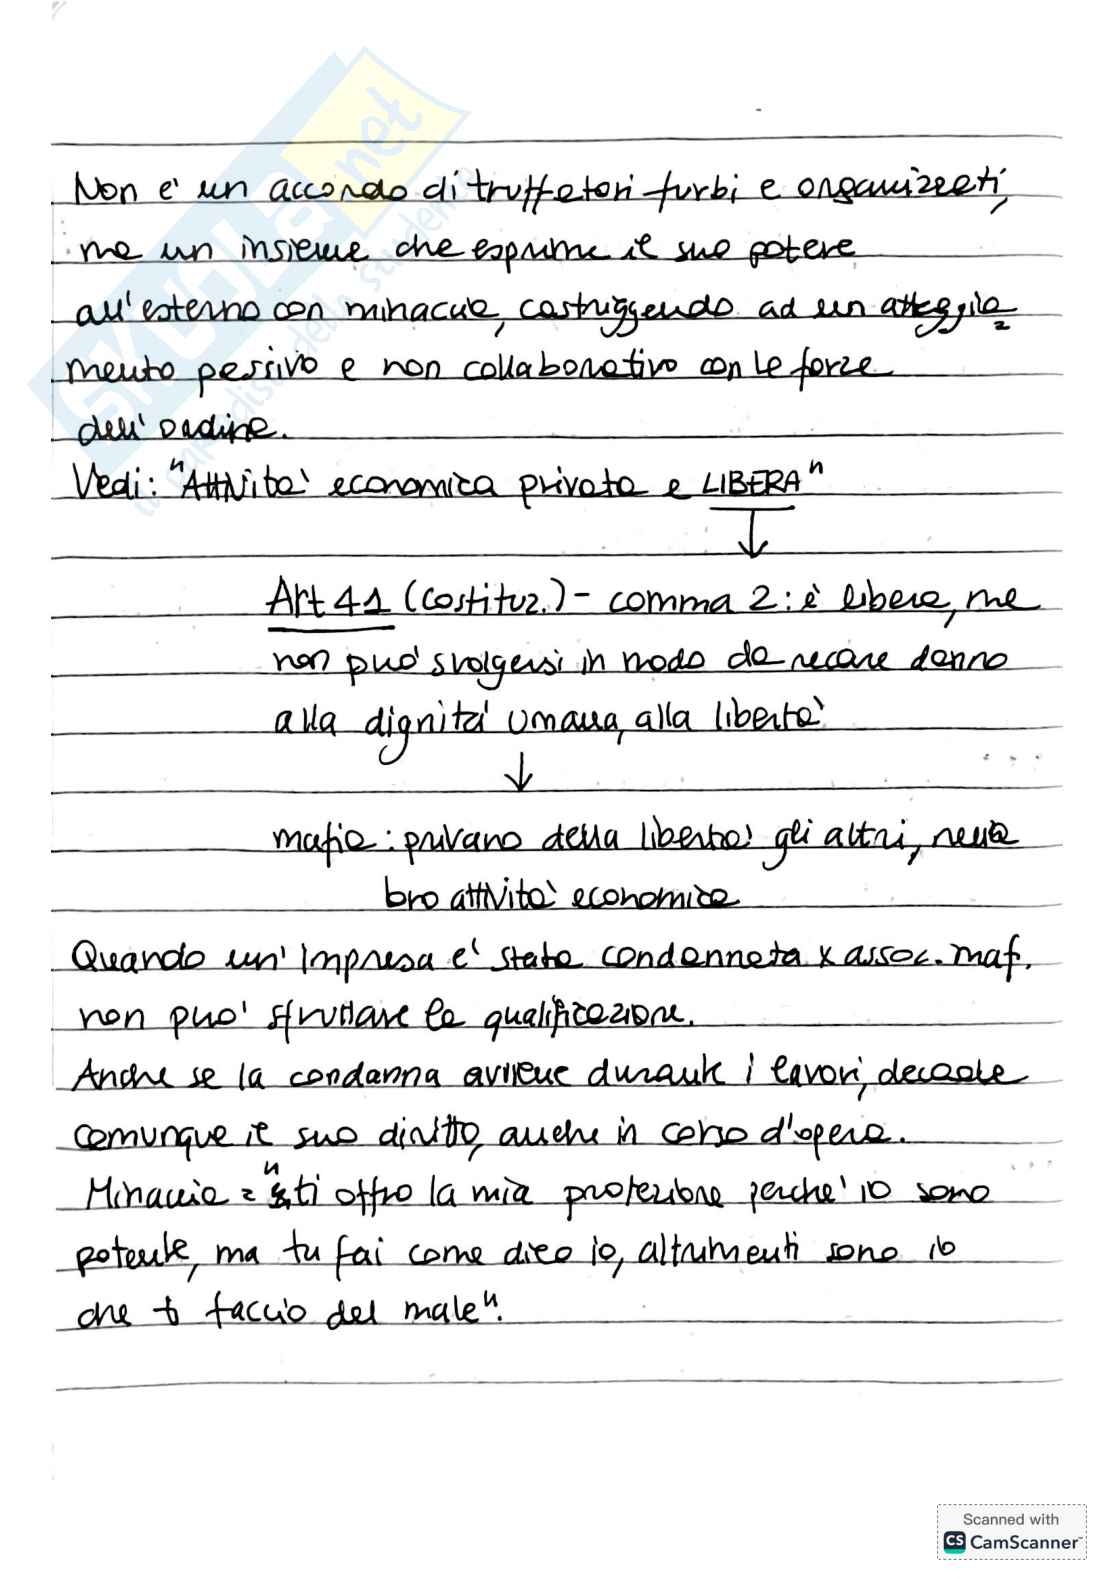 Non e' un accordo di truffatori furbi e organizzati,
ma un insieme che esprime il suo potere
all'esterno con minacce, costringendo ad un atteggia=
mento passivo e non collaborativo con le forze
dell'ordine.
Vedi: "Attività economica privata e LIBERA"
↓
Art 41 (costituz.) - comma 2: è libera, ma
non può svolgersi in modo da recare danno
alla dignità umana, alla libertà
↓
mafia: privano della libertà gli altri, nella
loro attività economica
Quando un'impresa e' stata condannata x assoc. maf.
non puo' sfruttare la qualificazione.
Anche se la condanna avviene durante i lavori, decade
comunque il suo diritto, anche in corso d'opera.
Minaccia = "ti offro la mia protezione perche' io sono
potente, ma tu fai come dico io, altrimenti sono io
che ti faccio del male".
SKUOLA.net
Scanned with
CS CamScanner